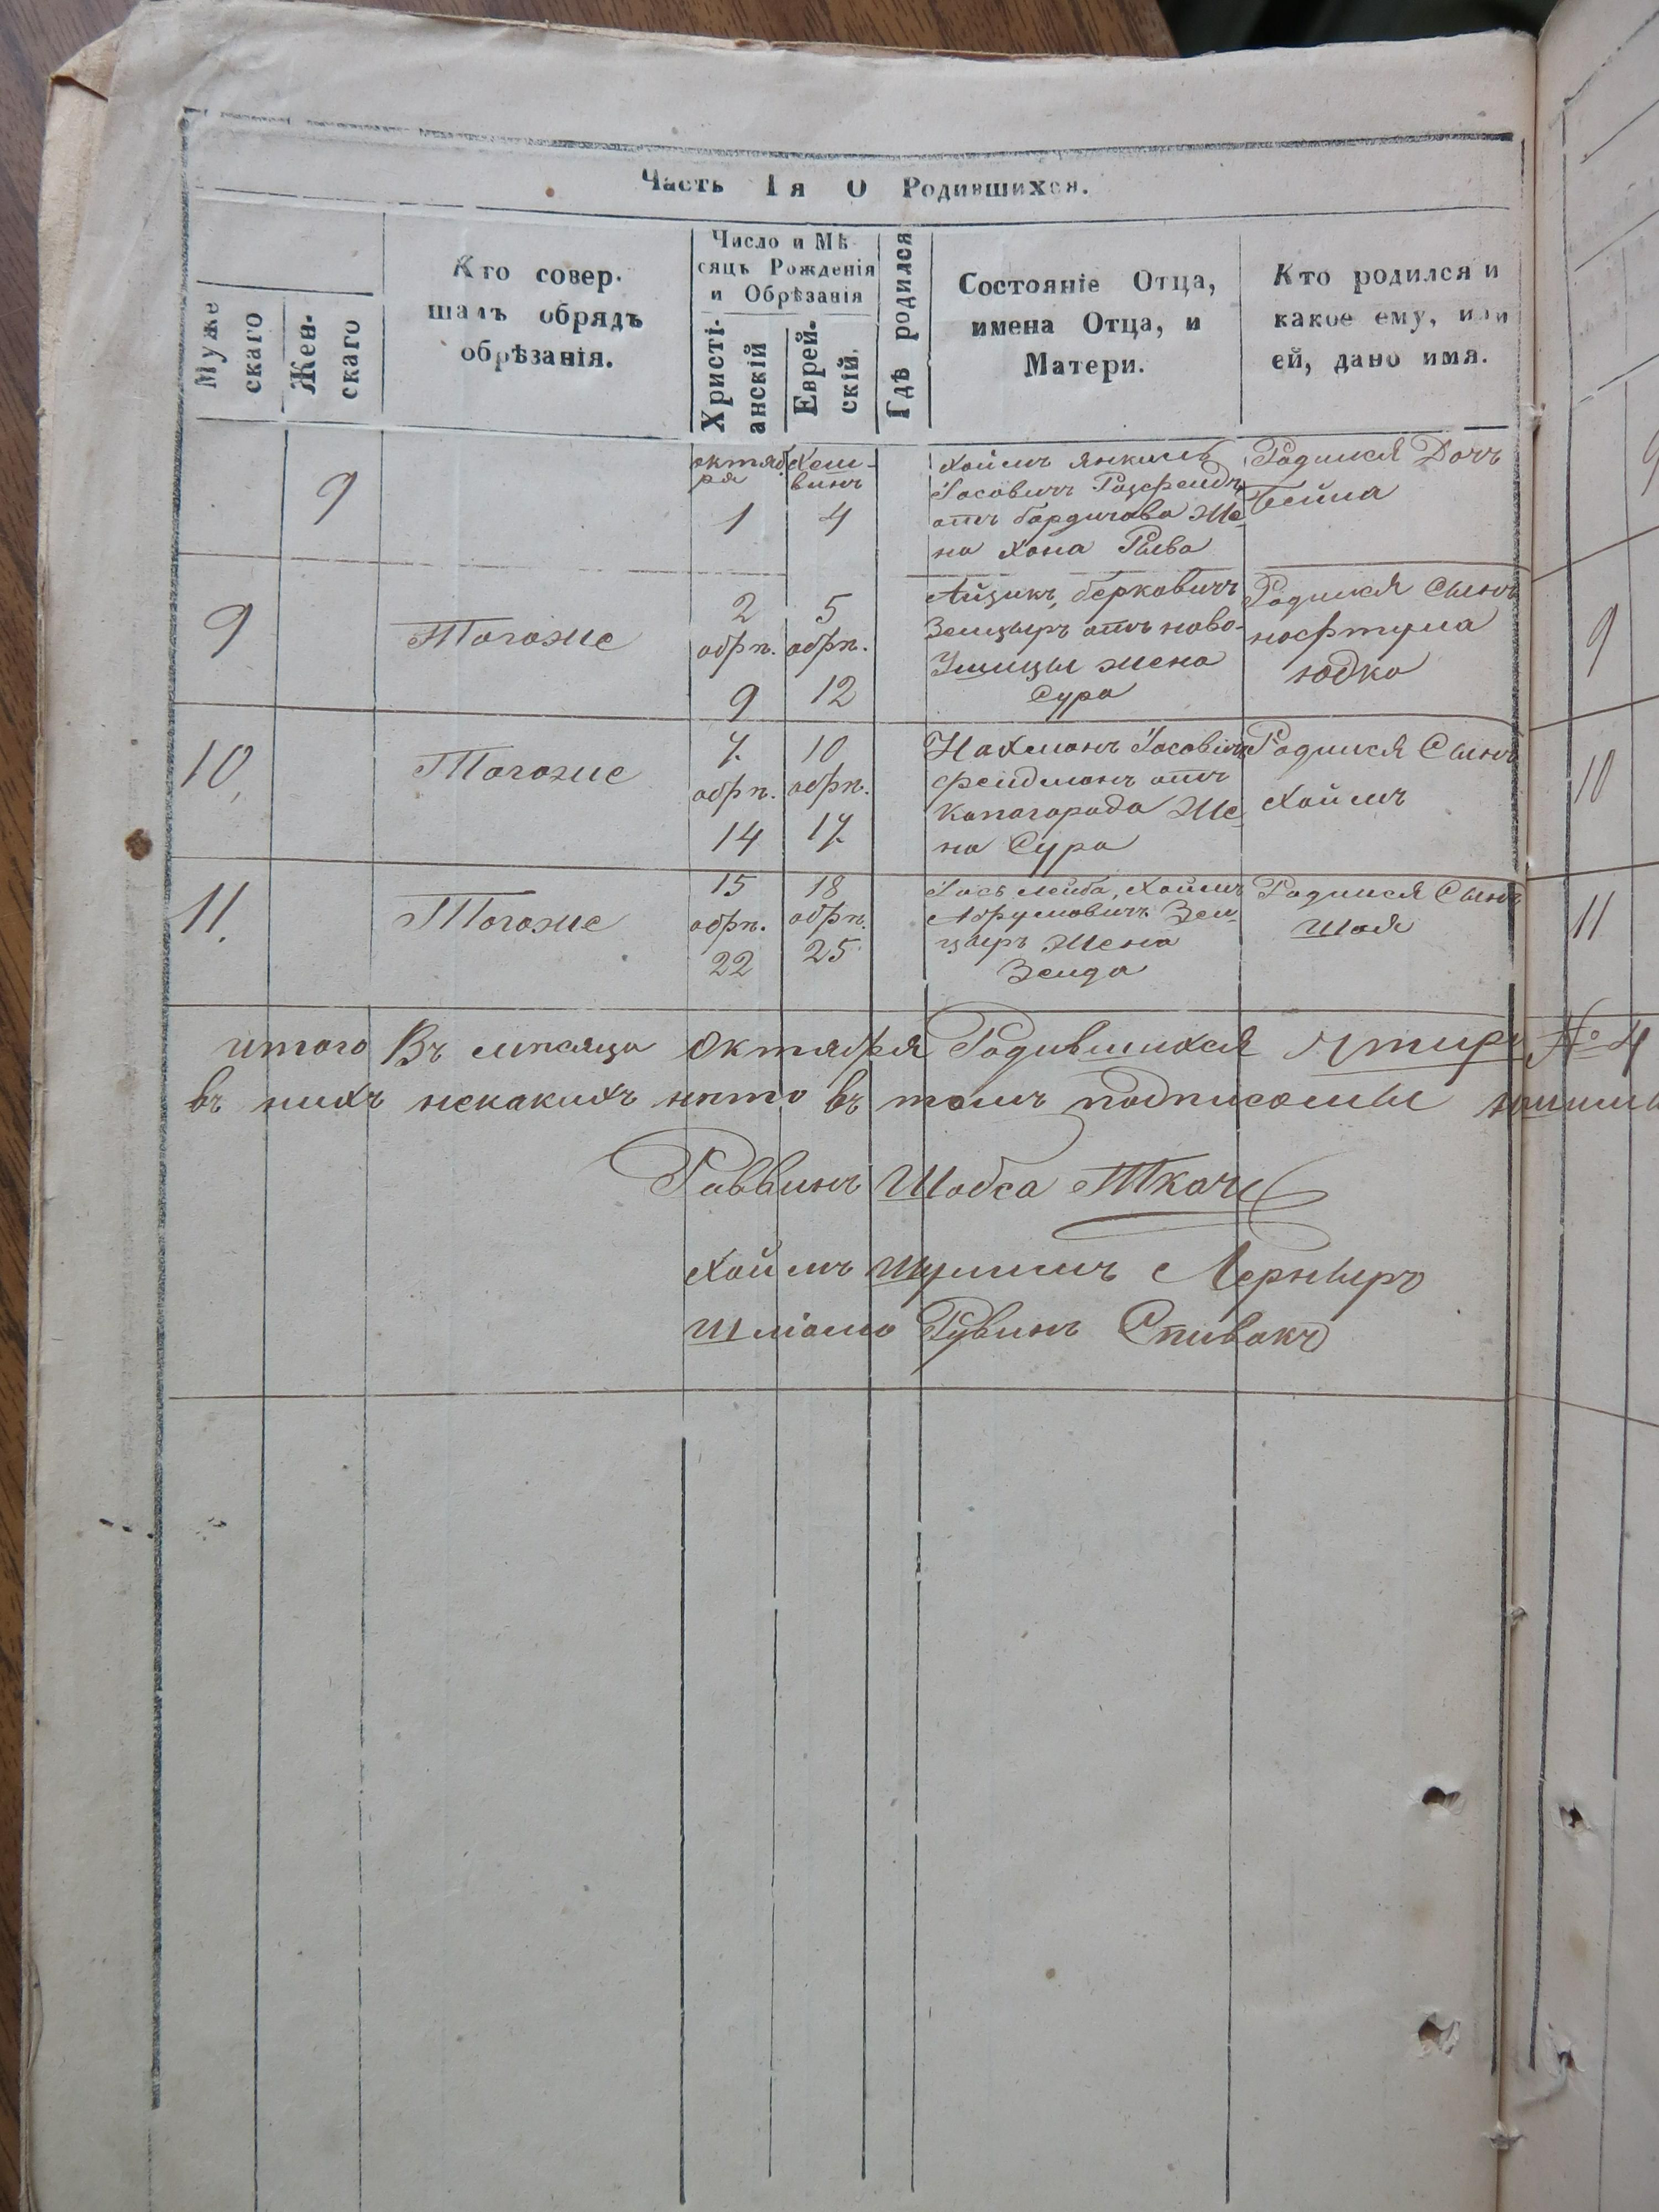 Часть 1я О Родившихся.
Муже
скаго
Жен-
скаго
Кто совер-
шалъ обрядъ
обрѣзанія.
Число и Мѣ-
сяцъ Рожденія
и Обрѣзанія
Христі-
анскій
Еврей-
скій.
Гдѣ родился
Состояніе Отца,
имена Отца, и
Матери.
Кто родился и
какое ему, или
ей, дано имя.
9
октяб
ря
1
Хеш-
винъ
4
Хаимъ Янкиль
Іосовичъ
отъ бардичова Же-
на Хана Рива
Родился Дочъ
Бейла
9
9
Тогоже
2
обрѣ.
9
5
обрѣ.
12
Айзикъ, берковичъ
Зельцыръ отъ ново-
Ушицы жена
Сура
Родился Сынъ
нафтула
юдко
9
10
Тогоже
7.
обрѣ.
14
10
обрѣ.
17.
Нахманъ Іосовичъ
фельдманъ отъ
капагорода Же-
на Сура
Родился Сынъ
Хаимъ
10
11.
Тогоже
15
обрѣ.
22
18
обрѣ.
25
Іось лейба, Хаимъ
Абрумовичъ Зель-
цыръ Жена
Зельда
Родился Сынъ
Шая
11
итого Въ мѣсяца Октября Родившихся чтири № 4
въ нихъ некакихъ нѣто въ томъ подписомы
Раввинъ Шабса Ткачъ
Хаимъ Шулимъ Лерныръ
Шліомо Рувинъ Спивакъ